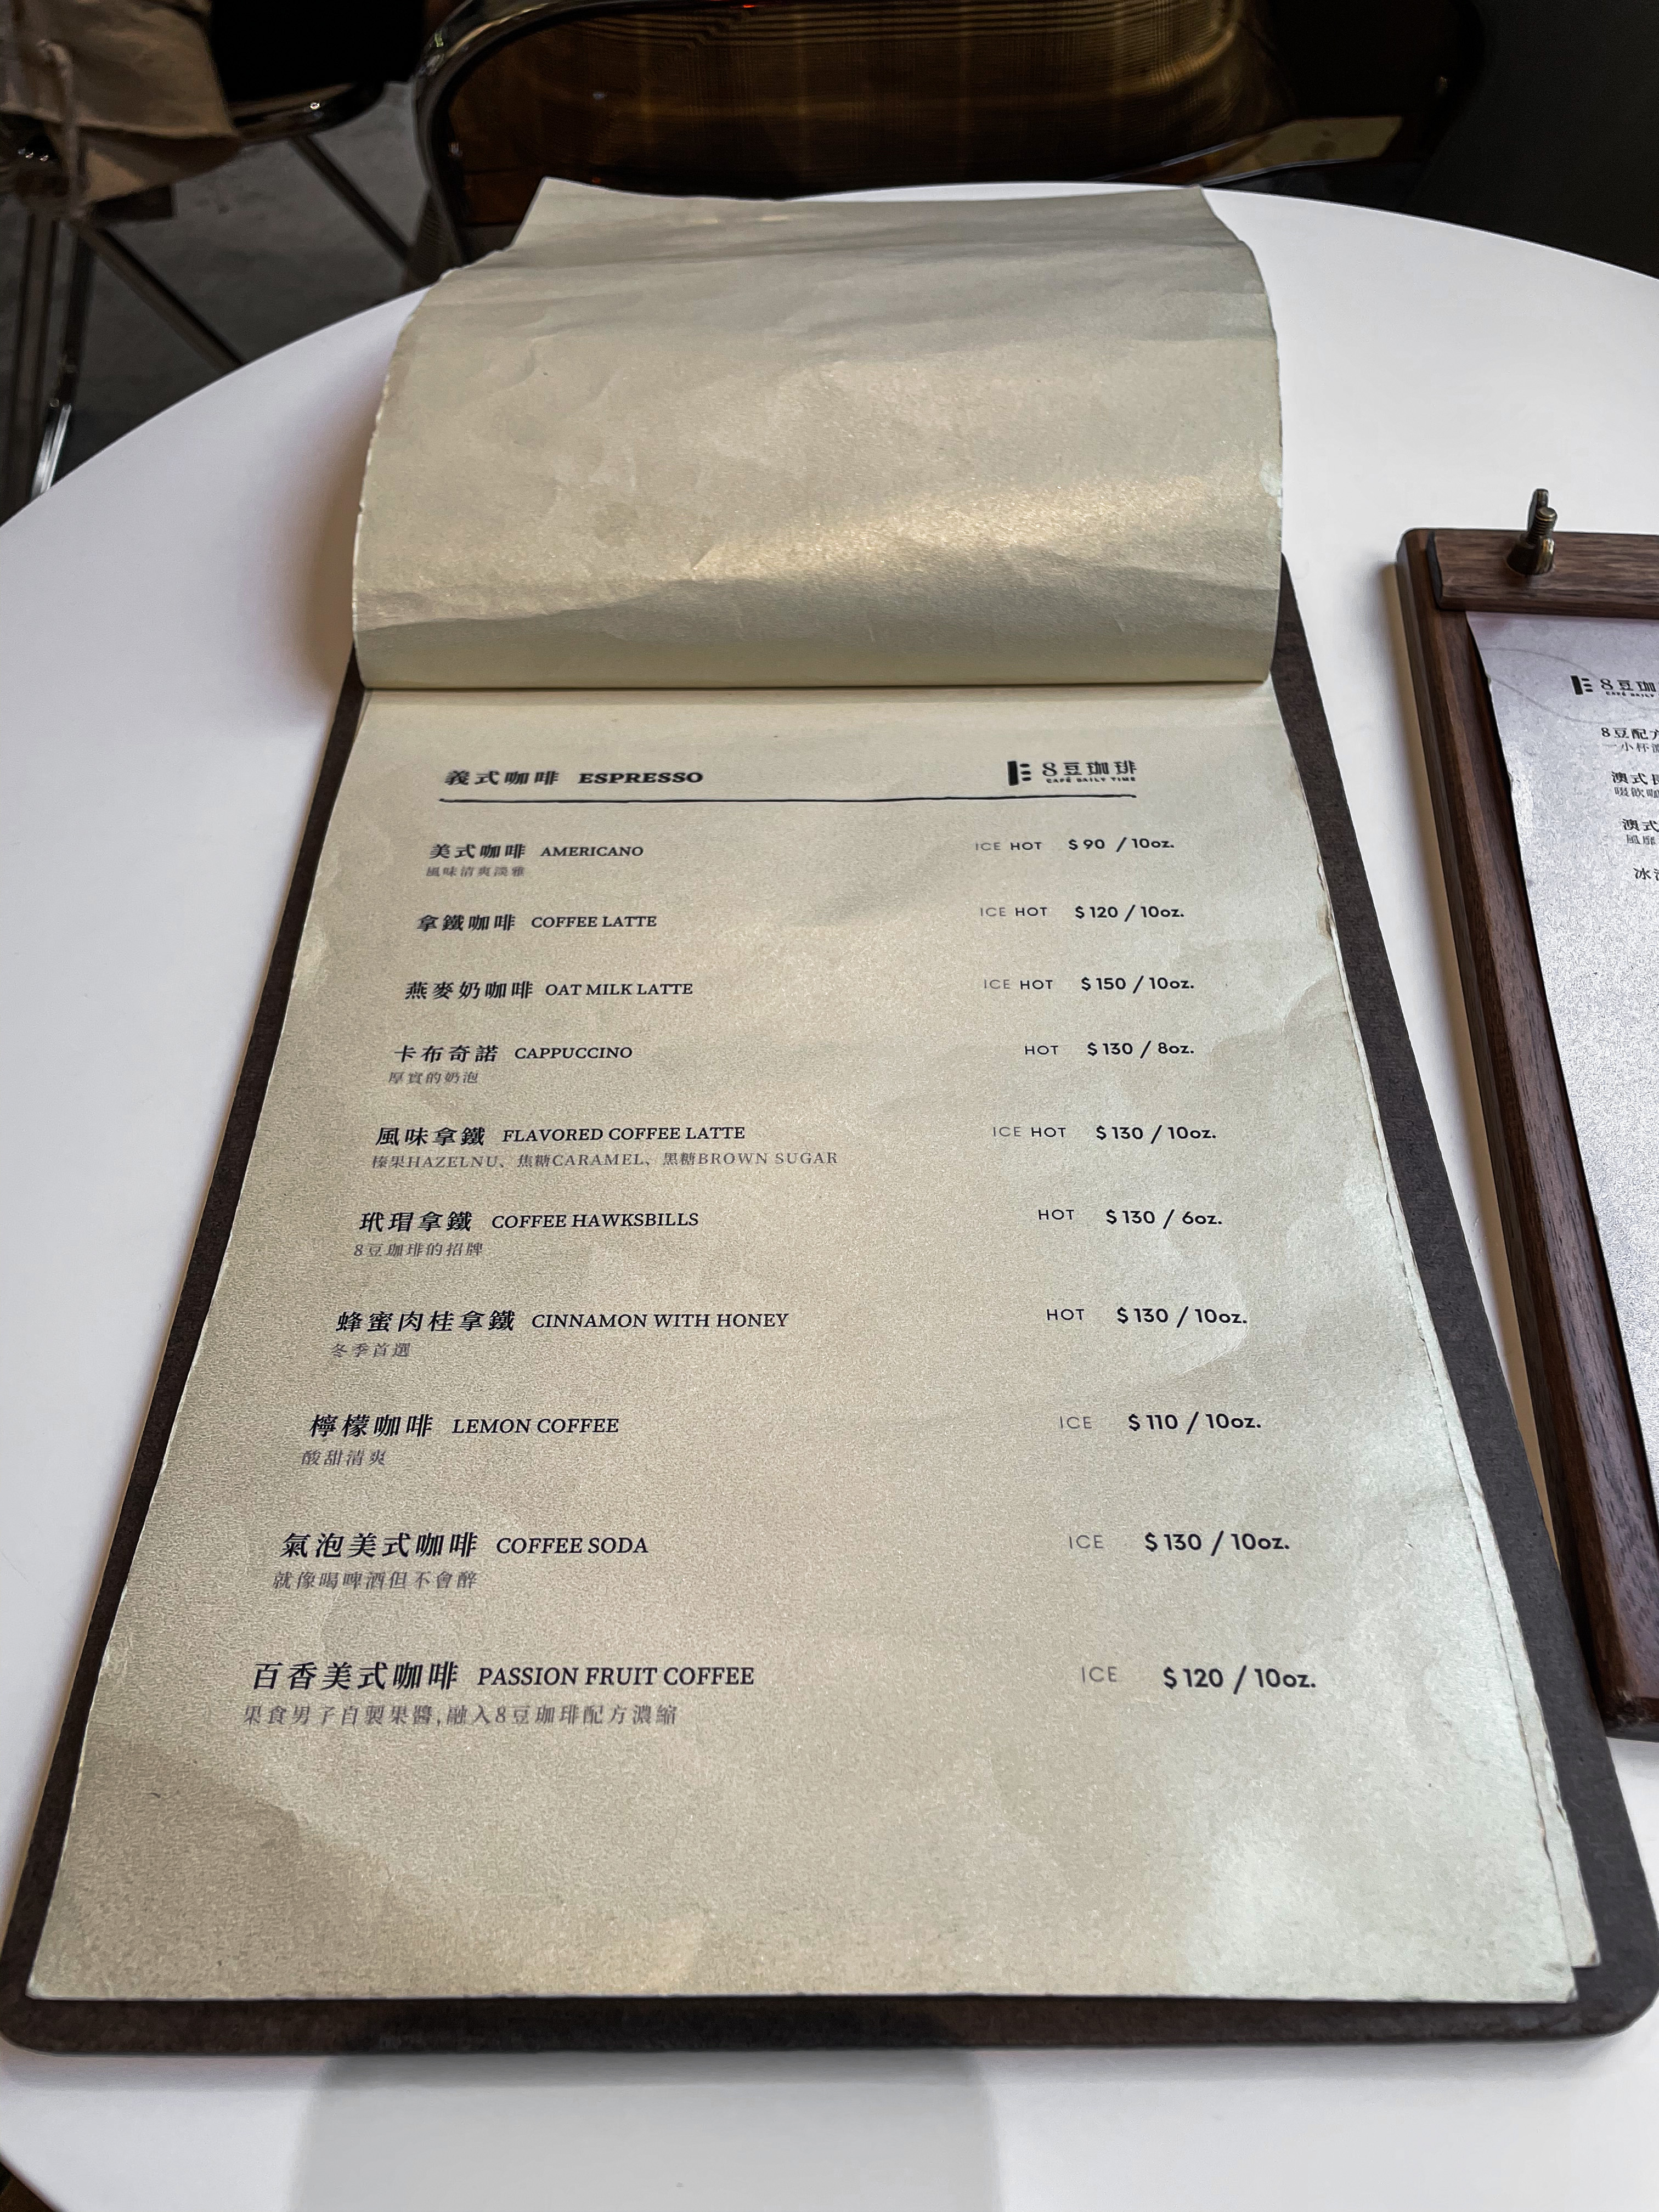 義式咖啡 ESPRESSO
8豆珈琲
CAFÉ DAILY TIME
美式咖啡 AMERICANO ICE HOT $90 / 10oz.
風味清爽淡雅
拿鐵咖啡 COFFEE LATTE ICE HOT $120 / 10oz.
燕麥奶咖啡 OAT MILK LATTE ICE HOT $150 / 10oz.
卡布奇諾 CAPPUCCINO HOT $130 / 8oz.
厚實的奶泡
風味拿鐵 FLAVORED COFFEE LATTE ICE HOT $130 / 10oz.
榛果HAZELNU、焦糖CARAMEL、黑糖BROWN SUGAR
玳瑁拿鐵 COFFEE HAWKSBILLS HOT $130 / 6oz.
8豆珈琲的招牌
蜂蜜肉桂拿鐵 CINNAMON WITH HONEY HOT $130 / 10oz.
冬季首選
檸檬咖啡 LEMON COFFEE ICE $110 / 10oz.
酸甜清爽
氣泡美式咖啡 COFFEE SODA ICE $130 / 10oz.
就像喝啤酒但不會醉
百香美式咖啡 PASSION FRUIT COFFEE ICE $120 / 10oz.
果食男子自製果醬,融入8豆珈琲配方濃縮
8豆珈
8豆配方
一小杯
澳式
啜飲咖
澳式
風靡
冰